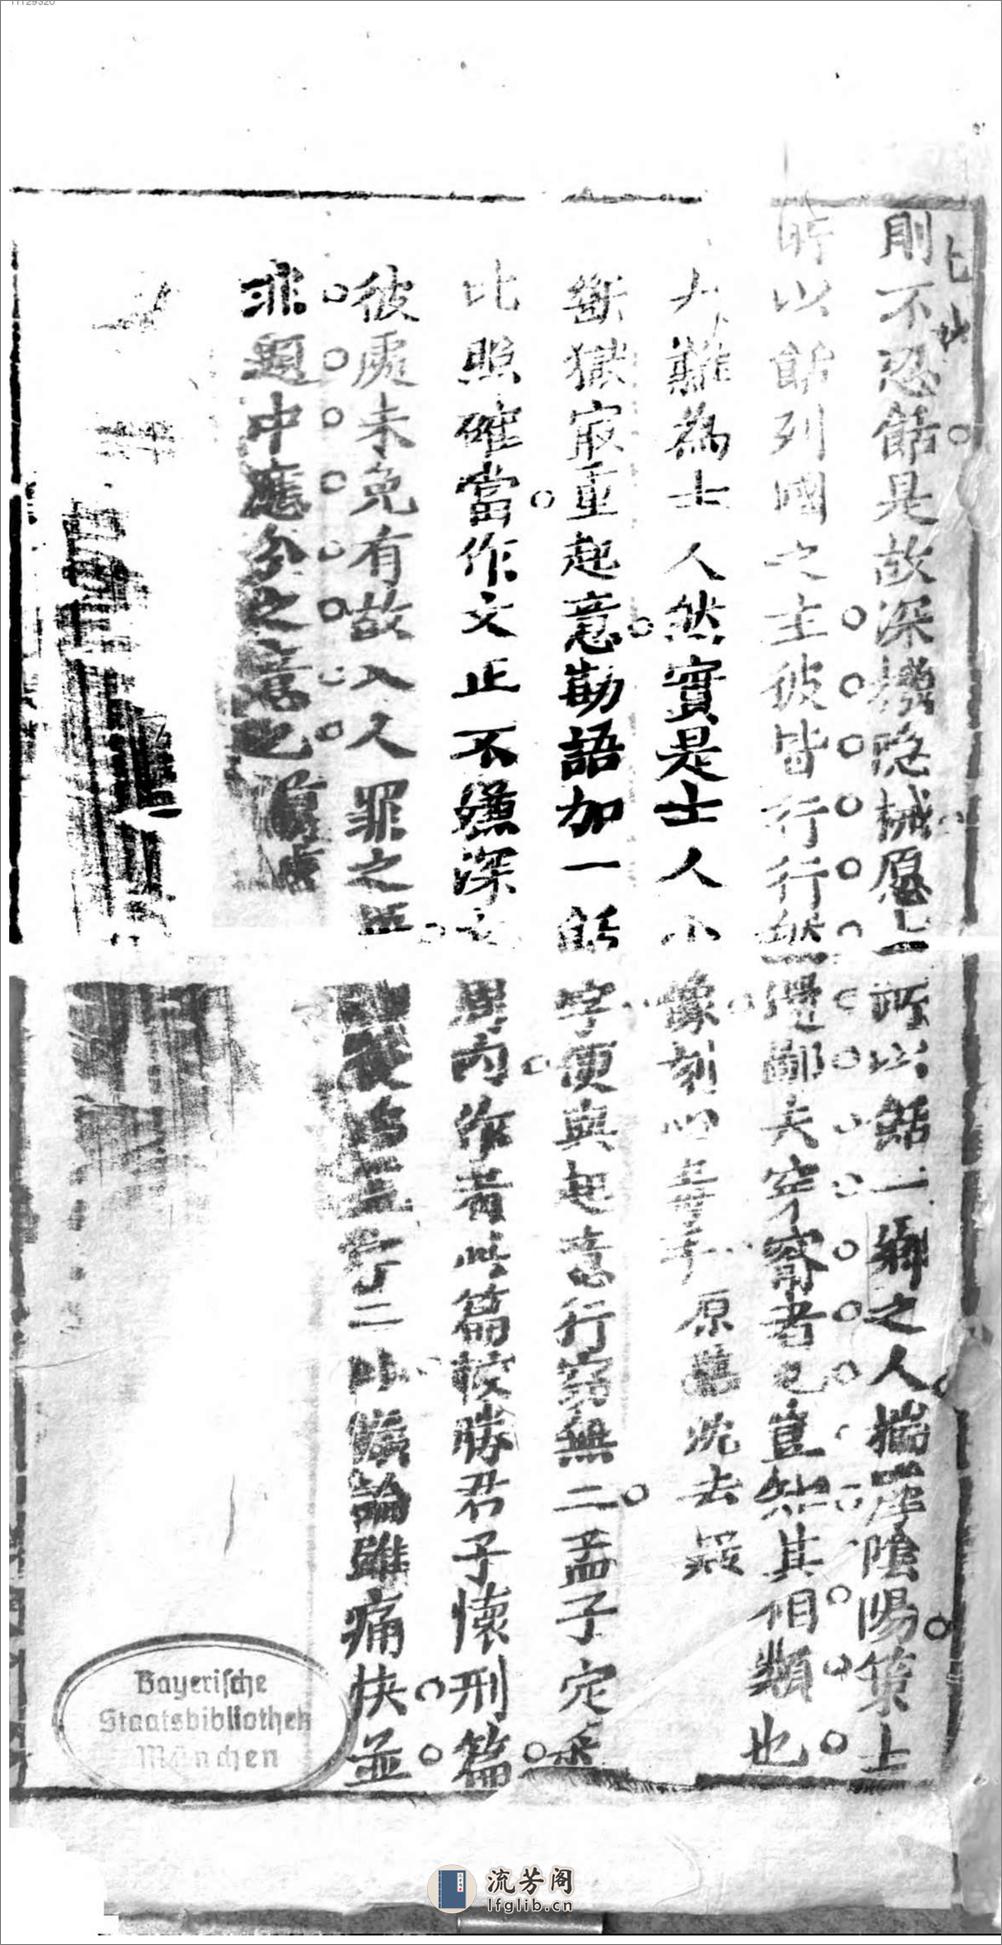 則不忍餂是故深機隱械愿士所以餂一鄉之人揣摩陰陽策士
時以餂列國之主彼皆行行然邊鄙夫穿窬者也豈知其相類也
人難為士人然實是士人小像刻心毒手
原舊況去
斷獄最重起意勘語加一餂字便與起意行竊無二孟子定
比照確當作文止不嫌深文周內作者此篇較勝君子懷刑篇
彼處未免有故入人罪之
二小 論雖痛快並
非題中應分之意也
Bayerische
Staatsbibliothek
München
流芳阁
lfglib.cn